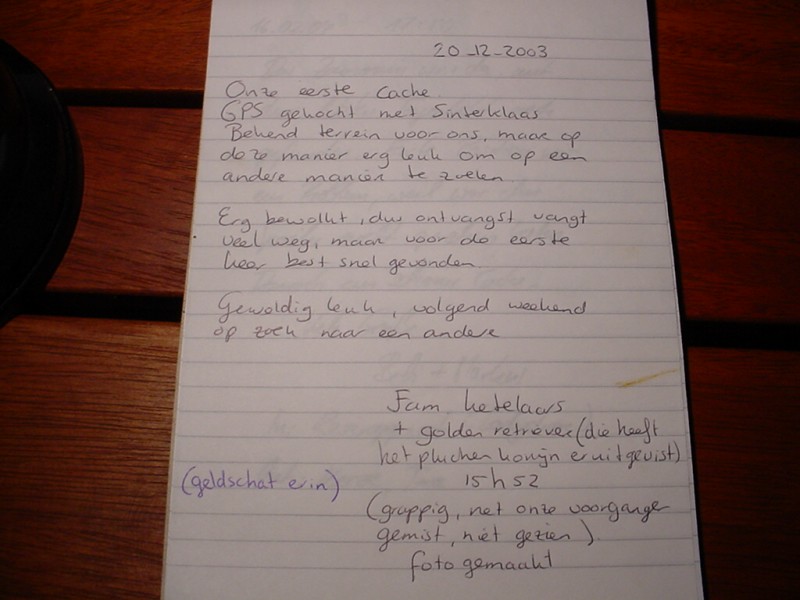 20-12-2003
Onze eerste cache
GPS gekocht met Sinterklaas
Bekend terrein voor ons, maar op
deze manier erg leuk om op een
andere manier te zoeken.
Erg bewolkt, dus ontvangst vangt
veel weg, maar voor de eerste
keer best snel gevonden.
Geweldig leuk, volgend weekend
op zoek naar een andere
Fam. Ketelaars
+ golden retrover (die heeft
het pluchen konijn eruitgevist)
(geldschat erin)
15h52
(grappig, net onze voorganger
gemist, niet gezien).
foto gemaakt